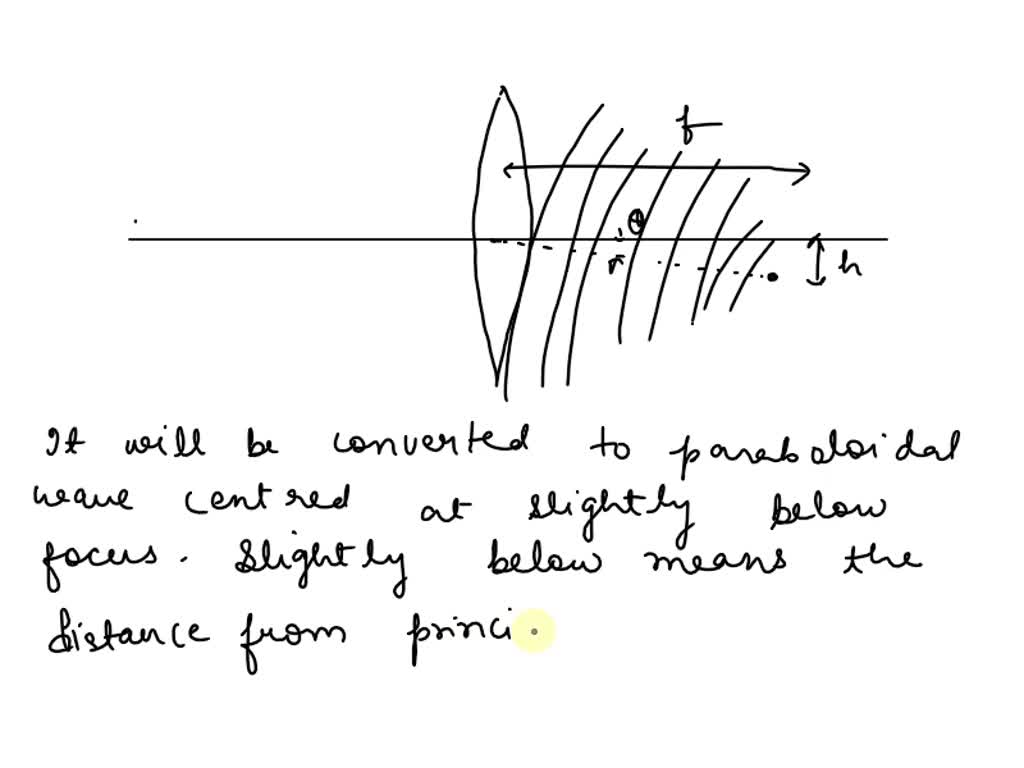 f
θ
h
It will be converted to paraboloidal
wave centred at slightly below
focus. Slightly below means the
distance from princi